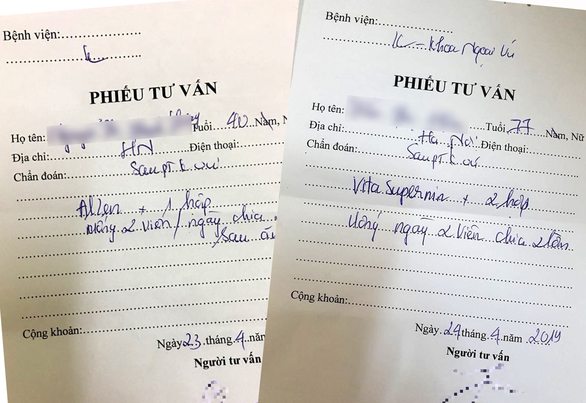 Bệnh viện:
K
PHIẾU TƯ VẤN
Họ tên: Tuổi: 40 Nam, N
Địa chỉ: HN Điện thoại:
Chẩn đoán: Sau pt K vú
+ 1 hộp
uống 2 viên / ngày chia
Sau
Cộng khoản:
Ngày 23 tháng 4 năm
Người tư vấn
Bệnh viện:
K - Khoa Ngoại Vú
PHIẾU TƯ VẤN
Họ tên: Tuổi: 77 Nam, Nữ
Địa chỉ: Hà Nội Điện thoại:
Chẩn đoán: Sau pt K vú
Vita Supermin + 2 hộp
Uống ngày 2 viên chia 2 lần
Cộng khoản:
Ngày 24 tháng 4 năm 2019
Người tư vấn